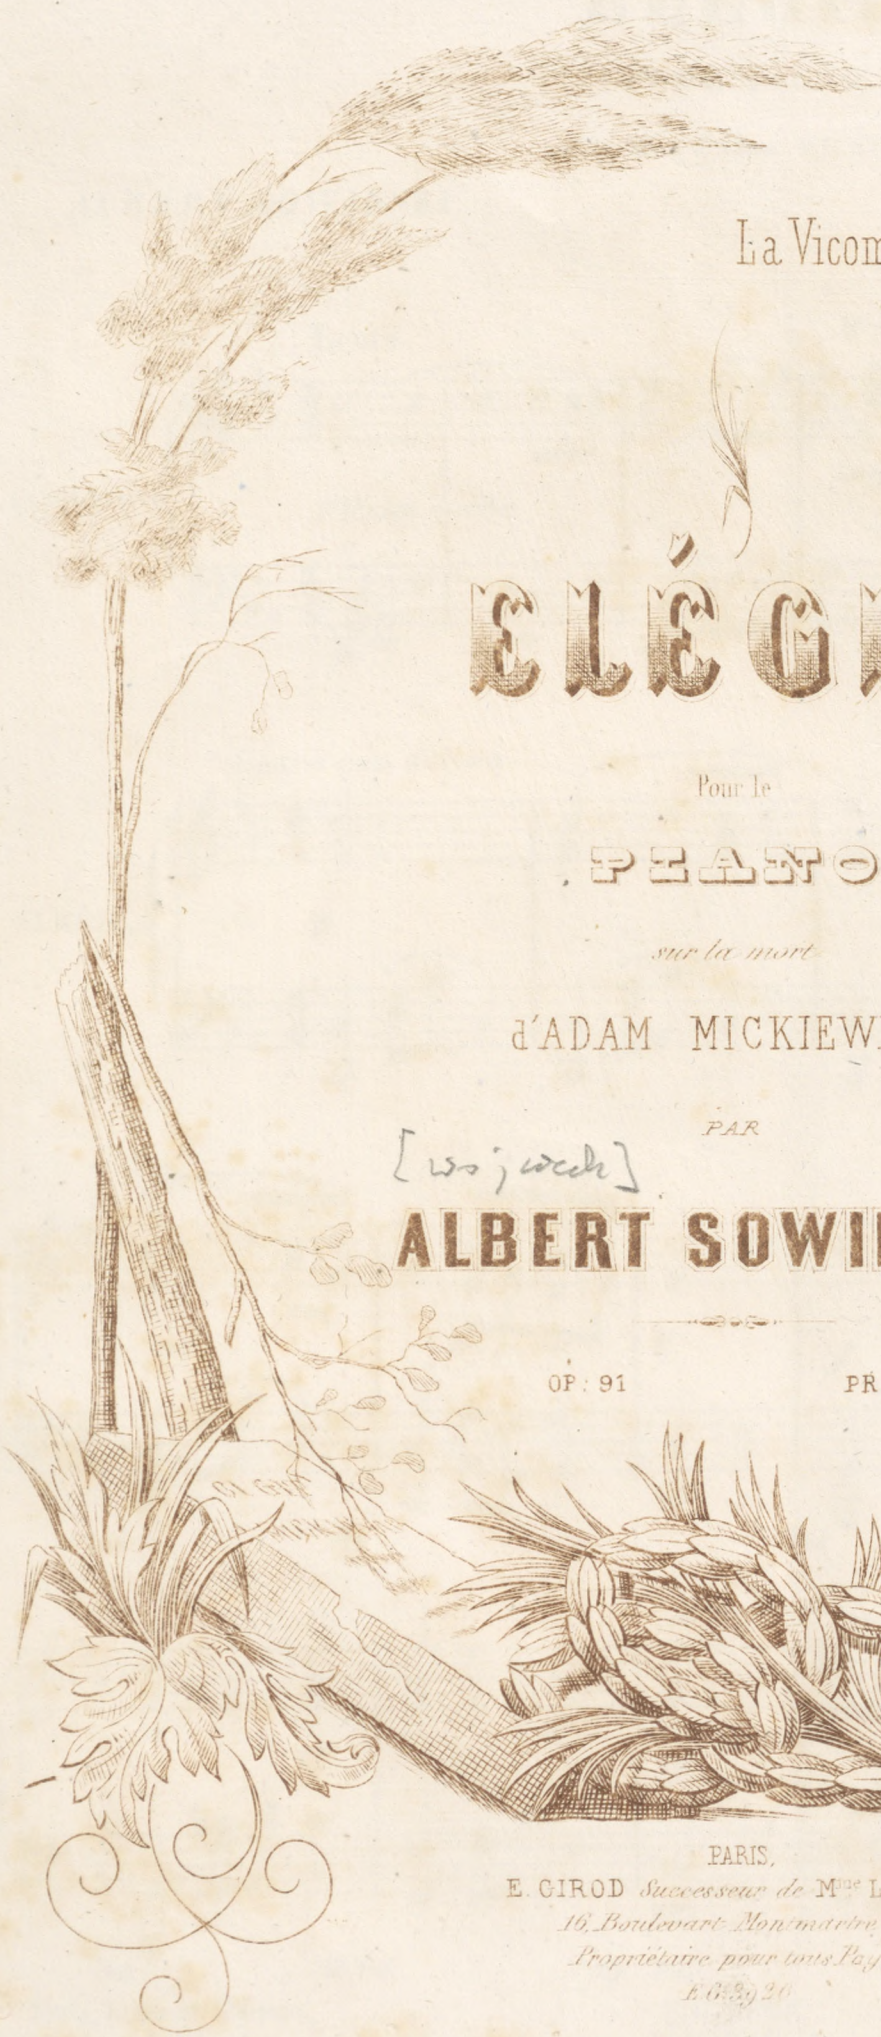 La Vicom
ELÉGI
Pour le
PIANO
sur la mort
d'ADAM MICKIEWI
PAR
[Wojciech]
ALBERT SOWIN
OP: 91 PR
PARIS,
E. GIROD Successeur de Mme L
16, Boulevart Montmartre,
Propriétaire pour tous Pay